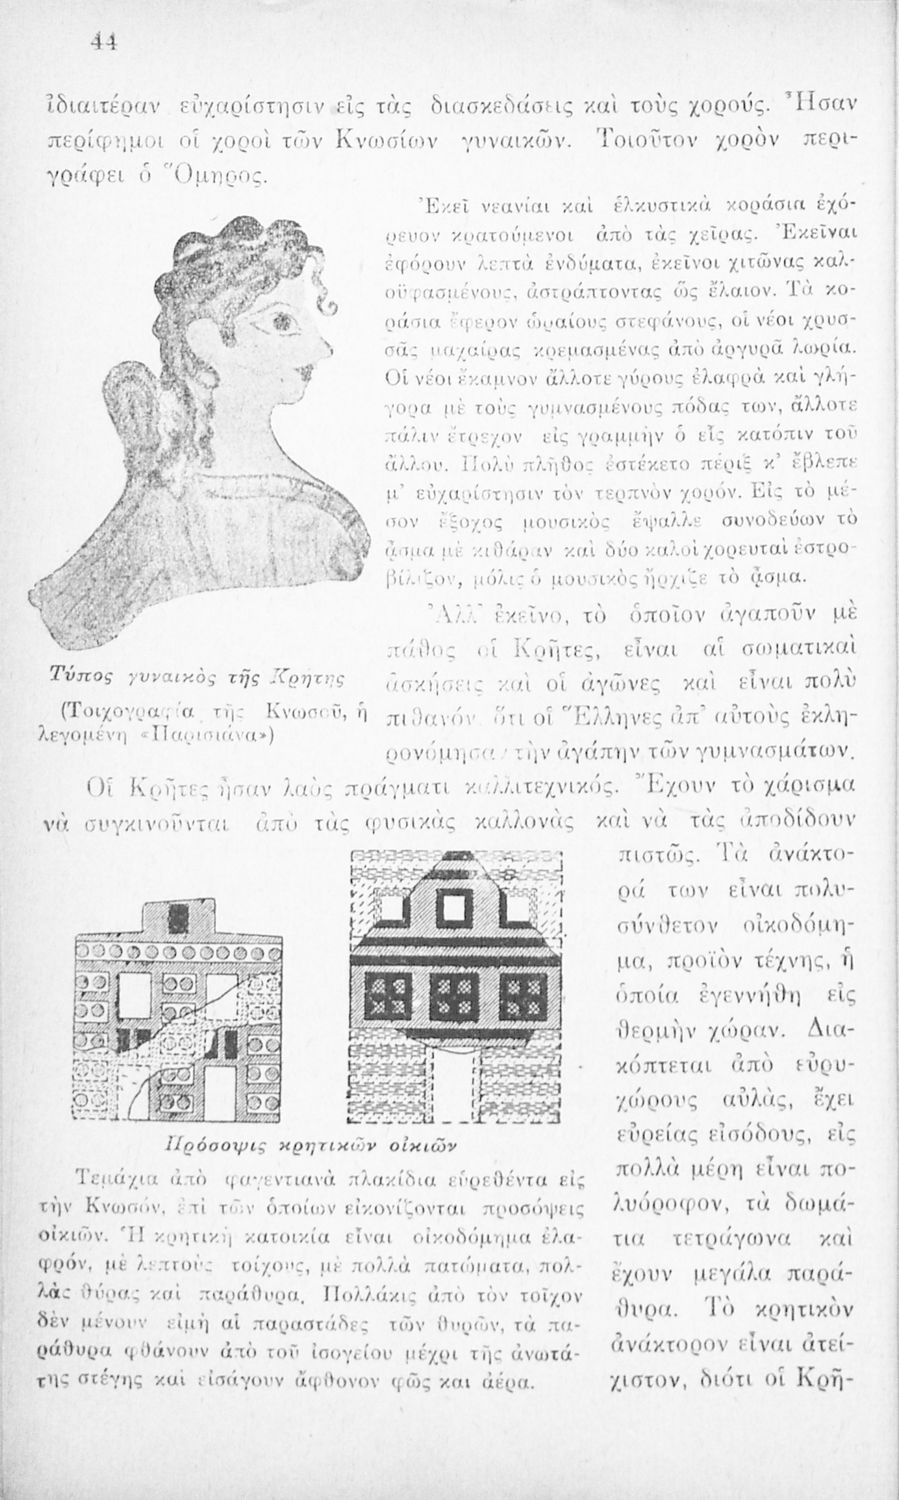 44
ἰδιαιτέραν εὐχαρίστησιν εἰς τὰς διασκεδάσεις καὶ τοὺς χορούς. Ἦσαν
περίφημοι οἱ χοροὶ τῶν Κνωσίων γυναικῶν. Τοιοῦτον χορὸν περι-
γράφει ὁ Ὅμηρος.
Ἐκεῖ νεανίαι καὶ ἑλκυστικὰ κοράσια ἐχό-
ρευον κρατούμενοι ἀπὸ τὰς χεῖρας. Ἐκεῖναι
ἐφόρουν λεπτὰ ἐνδύματα, ἐκεῖνοι χιτῶνας καλ-
οϋφασμένους, ἀστράπτοντας ὡς ἔλαιον. Τὰ κο-
ράσια ἔφερον ὡραίους στεφάνους, οἱ νέοι χρυσ-
σᾶς μαχαίρας κρεμασμένας ἀπὸ ἀργυρᾶ λωρία.
Οἱ νέοι ἔκαμνον ἄλλοτε γύρους ἐλαφρὰ καὶ γλή-
γορα μὲ τοὺς γυμνασμένους πόδας των, ἄλλοτε
πάλιν ἔτρεχον εἰς γραμμὴν ὁ εἷς κατόπιν τοῦ
ἄλλου. Πολὺ πλῆθος ἐστέκετο πέριξ κ' ἔβλεπε
μ' εὐχαρίστησιν τὸν τερπνὸν χορόν. Εἰς τὸ μέ-
σον ἔξοχος μουσικὸς ἔψαλλε συνοδεύων τὸ
ᾆσμα μὲ κιθάραν καὶ δύο καλοὶ χορευταὶ ἐστρο-
βίλιζον, μόλις ὁ μουσικὸς ἤρχιζε τὸ ᾆσμα.
Ἀλλ' ἐκεῖνο, τὸ ὁποῖον ἀγαποῦν μὲ
πάθος οἱ Κρῆτες, εἶναι αἱ σωματικαὶ
ἀσκήσεις καὶ οἱ ἀγῶνες καὶ εἶναι πολὺ
πιθανόν ὅτι οἱ Ἕλληνες ἀπ' αὐτοὺς ἐκλη-
ρονόμησαν τὴν ἀγάπην τῶν γυμνασμάτων.
Τύπος γυναικὸς τῆς Κρήτης
(Τοιχογραφία τῆς Κνωσοῦ, ἡ
λεγομένη «Παρισιάνα»)
Οἱ Κρῆτες ἦσαν λαὸς πράγματι καλλιτεχνικός. Ἔχουν τὸ χάρισμα
νὰ συγκινοῦνται ἀπὸ τὰς φυσικὰς καλλονὰς καὶ νὰ τὰς ἀποδίδουν
πιστῶς. Τὰ ἀνάκτο-
ρά των εἶναι πολυ-
σύνθετον οἰκοδόμη-
μα, προϊὸν τέχνης, ἡ
ὁποία ἐγεννήθη εἰς
θερμὴν χώραν. Δια-
κόπτεται ἀπὸ εὐρυ-
χώρους αὐλὰς, ἔχει
εὐρείας εἰσόδους, εἰς
πολλὰ μέρη εἶναι πο-
λυόροφον, τὰ δωμά-
τια τετράγωνα καὶ
ἔχουν μεγάλα παρά-
θυρα. Τὸ κρητικὸν
ἀνάκτορον εἶναι ἀτεί-
χιστον, διότι οἱ Κρῆ-
Πρόσοψις κρητικῶν οἰκιῶν
Τεμάχια ἀπὸ φαγεντιανὰ πλακίδια εὑρεθέντα εἰς
τὴν Κνωσόν, ἐπὶ τῶν ὁποίων εἰκονίζονται προσόψεις
οἰκιῶν. Ἡ κρητικὴ κατοικία εἶναι οἰκοδόμημα ἐλα-
φρόν, μὲ λεπτοὺς τοίχους, μὲ πολλὰ πατώματα, πολ-
λὰς θύρας καὶ παράθυρα. Πολλάκις ἀπὸ τὸν τοῖχον
δὲν μένουν εἰμὴ αἱ παραστάδες τῶν θυρῶν, τὰ πα-
ράθυρα φθάνουν ἀπὸ τοῦ ἰσογείου μέχρι τῆς ἀνωτά-
της στέγης καὶ εἰσάγουν ἄφθονον φῶς και ἀέρα.